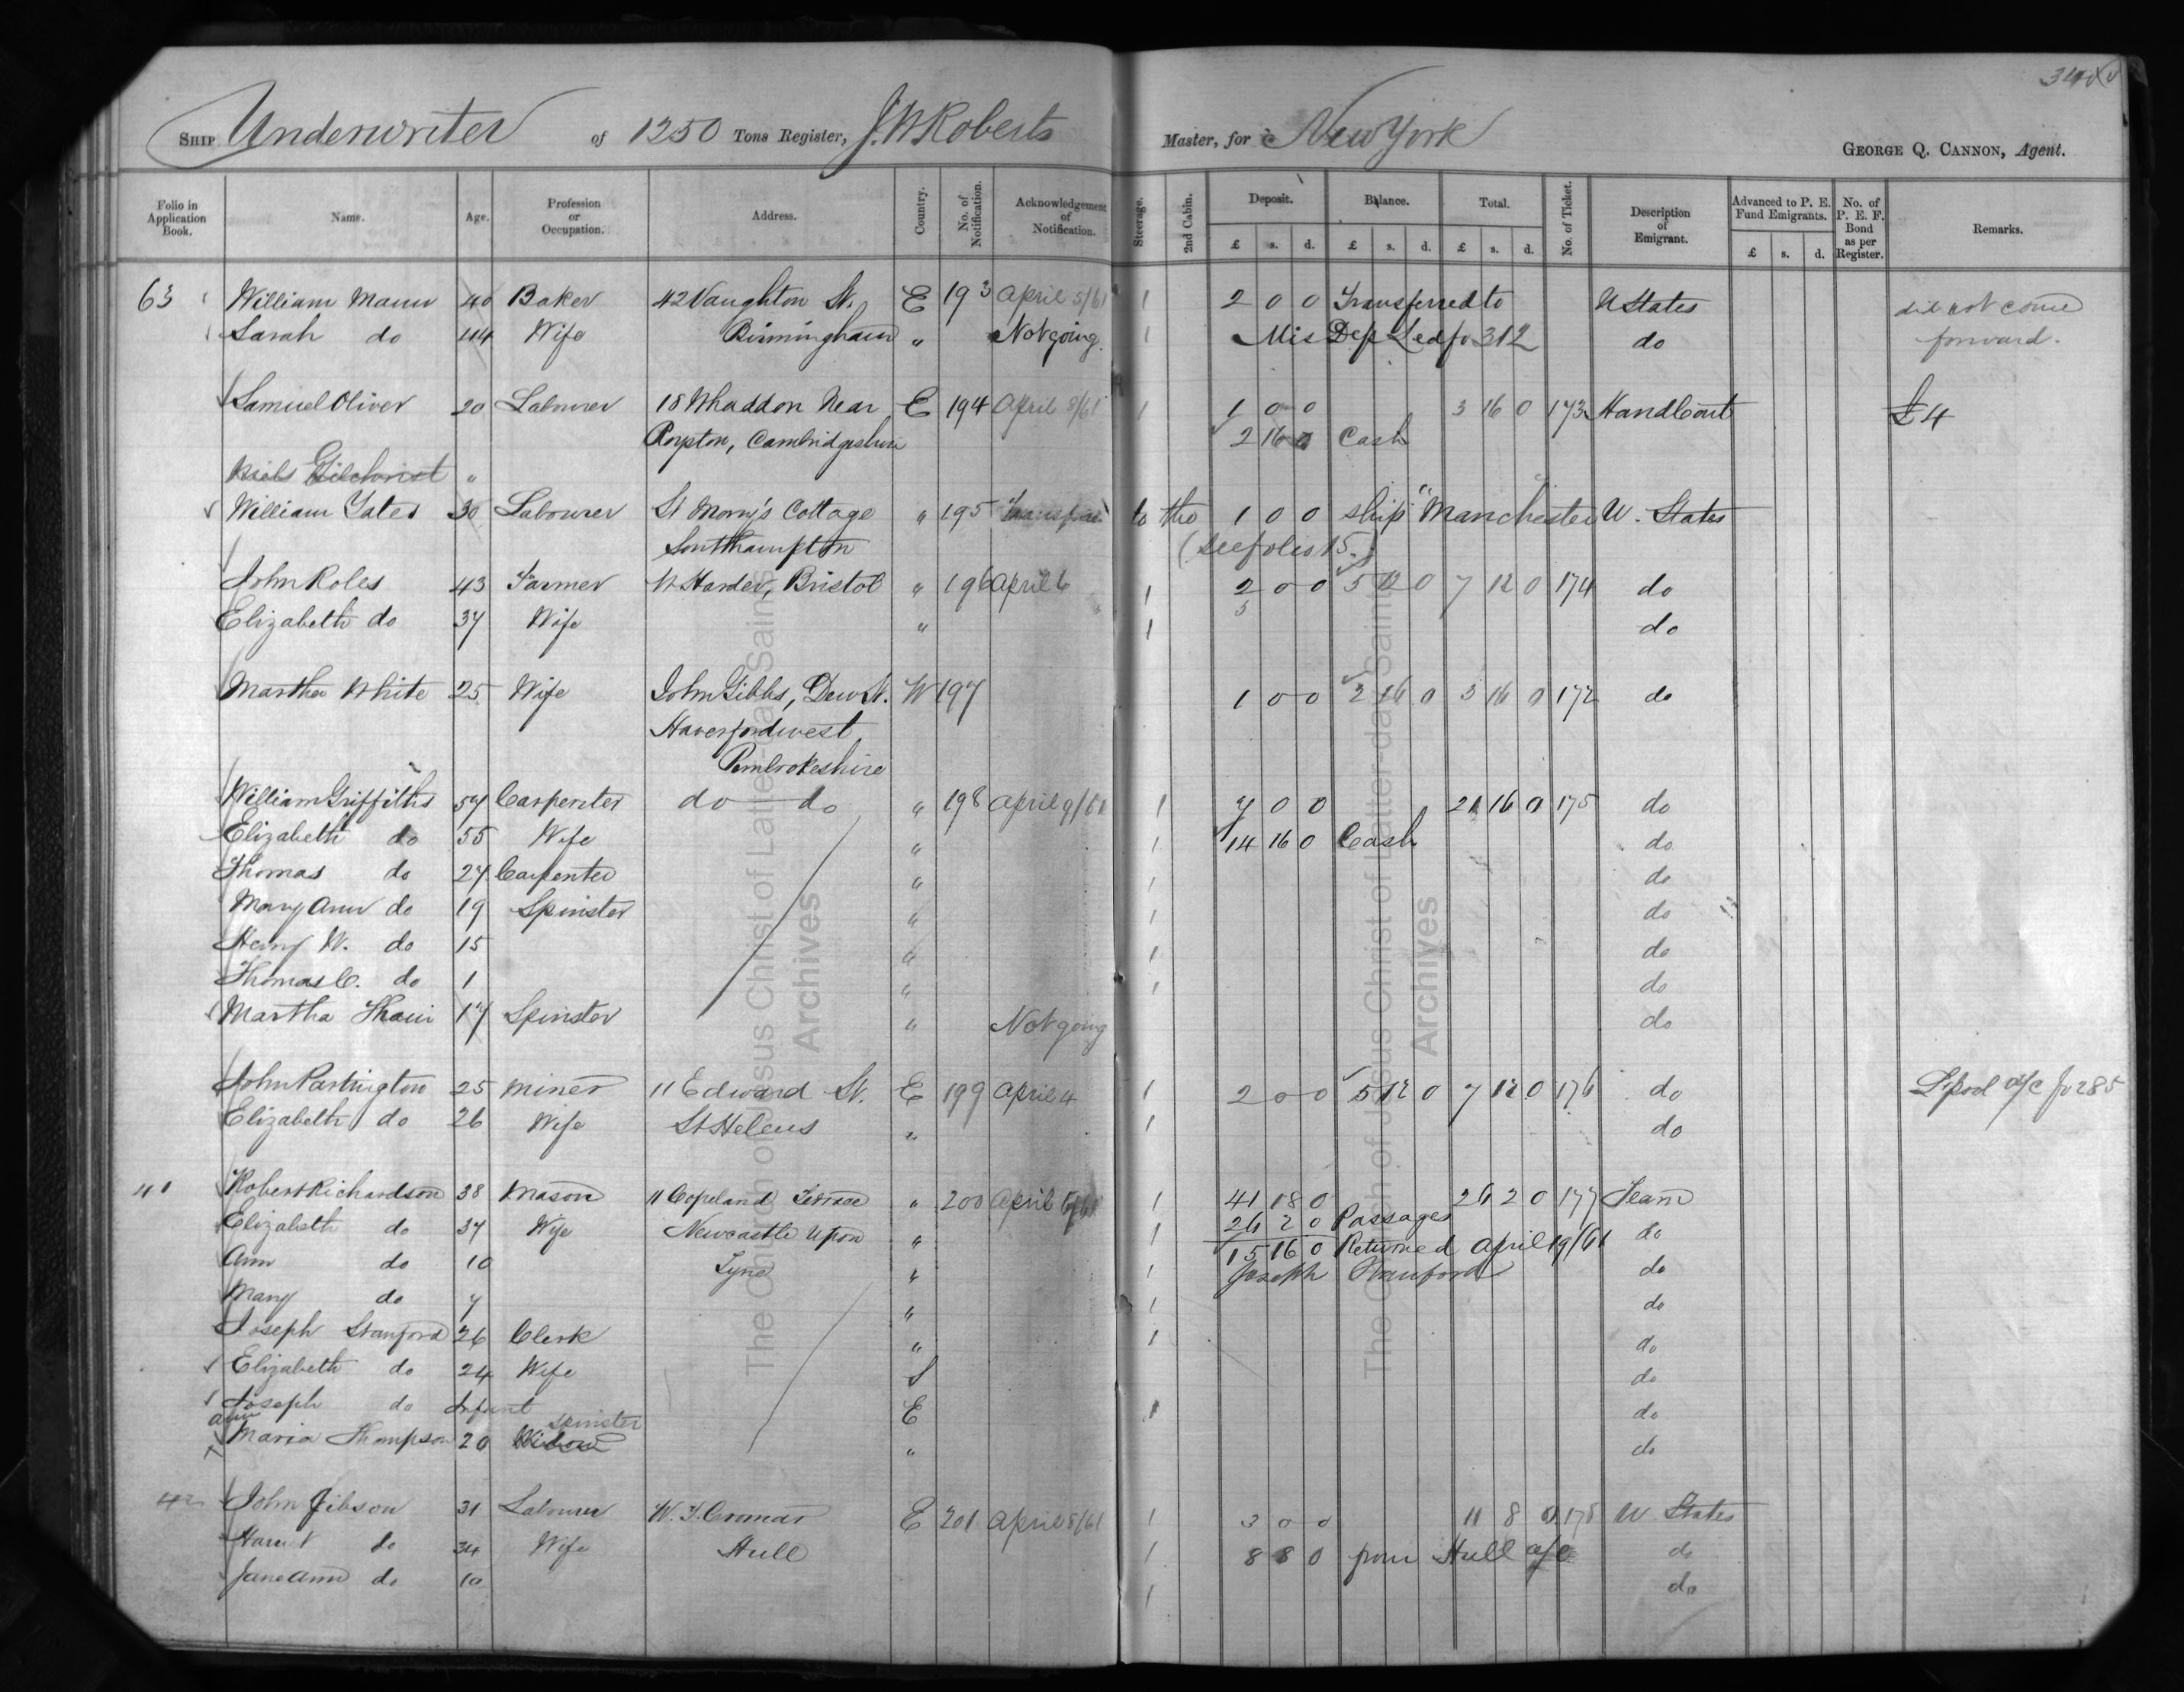 340
SHIP Underwriter of 1250 Tons Register, J. W Roberts Master, for New York GEORGE Q. CANNON, Agent.
Folio in Application Book. Name. Age. Profession or Occupation. Address. Country. No. of Notification. Acknowledgement of Notification. Steerage. 2nd Cabin. Deposit. £ s. d. Balance. £ s. d. Total. £ s. d. No. of Ticket. Description of Emigrant. Advanced to P. E. Fund Emigrants. £ s. d. No. of P. E. F. Bond as per Register. Remarks.
63 William Mann 40 Baker 42 Vaughton St. E 193 April 5/61 1 2 0 0 Transferred to U States did not come
Sarah do 44 Wife Birmingham " Not going. 1 Mis Dep Led fo 312 do forward.
Samuel Oliver 20 Labourer 18 Whaddon Near E 194 April 8/61 1 1 0 0 3 16 0 173 HandCart £4
Royston, Cambridgeshire 2 16 0 Cash
Niels Gilchrist "
William Yates 30 Labourer St Mary's Cottage " 195 Transferred to the 1 0 0 ship "Manchester U. States
Southampton (See folio 15.)
John Roles 43 Farmer W Harder, Bristol " 196 April 6 1 2 0 0 5 12 0 7 12 0 174 do
Elizabeth do 37 Wife " 1 5 do
Martha White 25 Wife John Gibbs, Dew St. W 197 1 0 0 2 16 0 3 16 0 172 do
Haverfordwest
Pembrokeshire
William Griffiths 57 Carpenter do do " 198 April 9/61 1 7 0 0 21 16 0 175 do
Elizabeth do 55 Wife " 1 14 16 0 Cash do
Thomas do 27 Carpenter " 1 do
Mary Ann do 19 Spinster " 1 do
Henry W. do 15 " 1 do
Thomas C. do 1 " 1 do
Martha Thain 17 Spinster " Not going do
John Parthington 25 Miner 11 Edward St. E 199 April 4 1 2 0 0 5 12 0 7 12 0 176 do L'pool a/c fo 285
Elizabeth do 26 Wife St Helens " 1 do
41 Robert Richardson 38 Mason 11 Copeland Terrace " 200 April 5/61 1 41 18 0 26 2 0 177 Team
Elizabeth do 37 Wife Newcastle Upon " 1 26 2 0 Passages do
Ann do 10 Tyne " 1 15 16 0 Returned April 19/61 do
Mary do 7 " 1 Joseph Stanford do
Joseph Stanford 26 Clerk " 1 do
Elizabeth do 24 Wife S do
Joseph do Infant E 1 do
Ann Maria Thompson 20 Widow spinster " do
42 John Gibson 31 Labourer W. T. Cromar E 201 April 8/61 1 3 0 0 11 8 0 178 U States
Harriet do 34 Wife Hull 1 8 8 0 from Hull a/c do
Jane Ann do 10 1 do
The Church of Jesus Christ of Latter-day Saints
Archives
The Church of Jesus Christ of Latter-day Saints
Archives